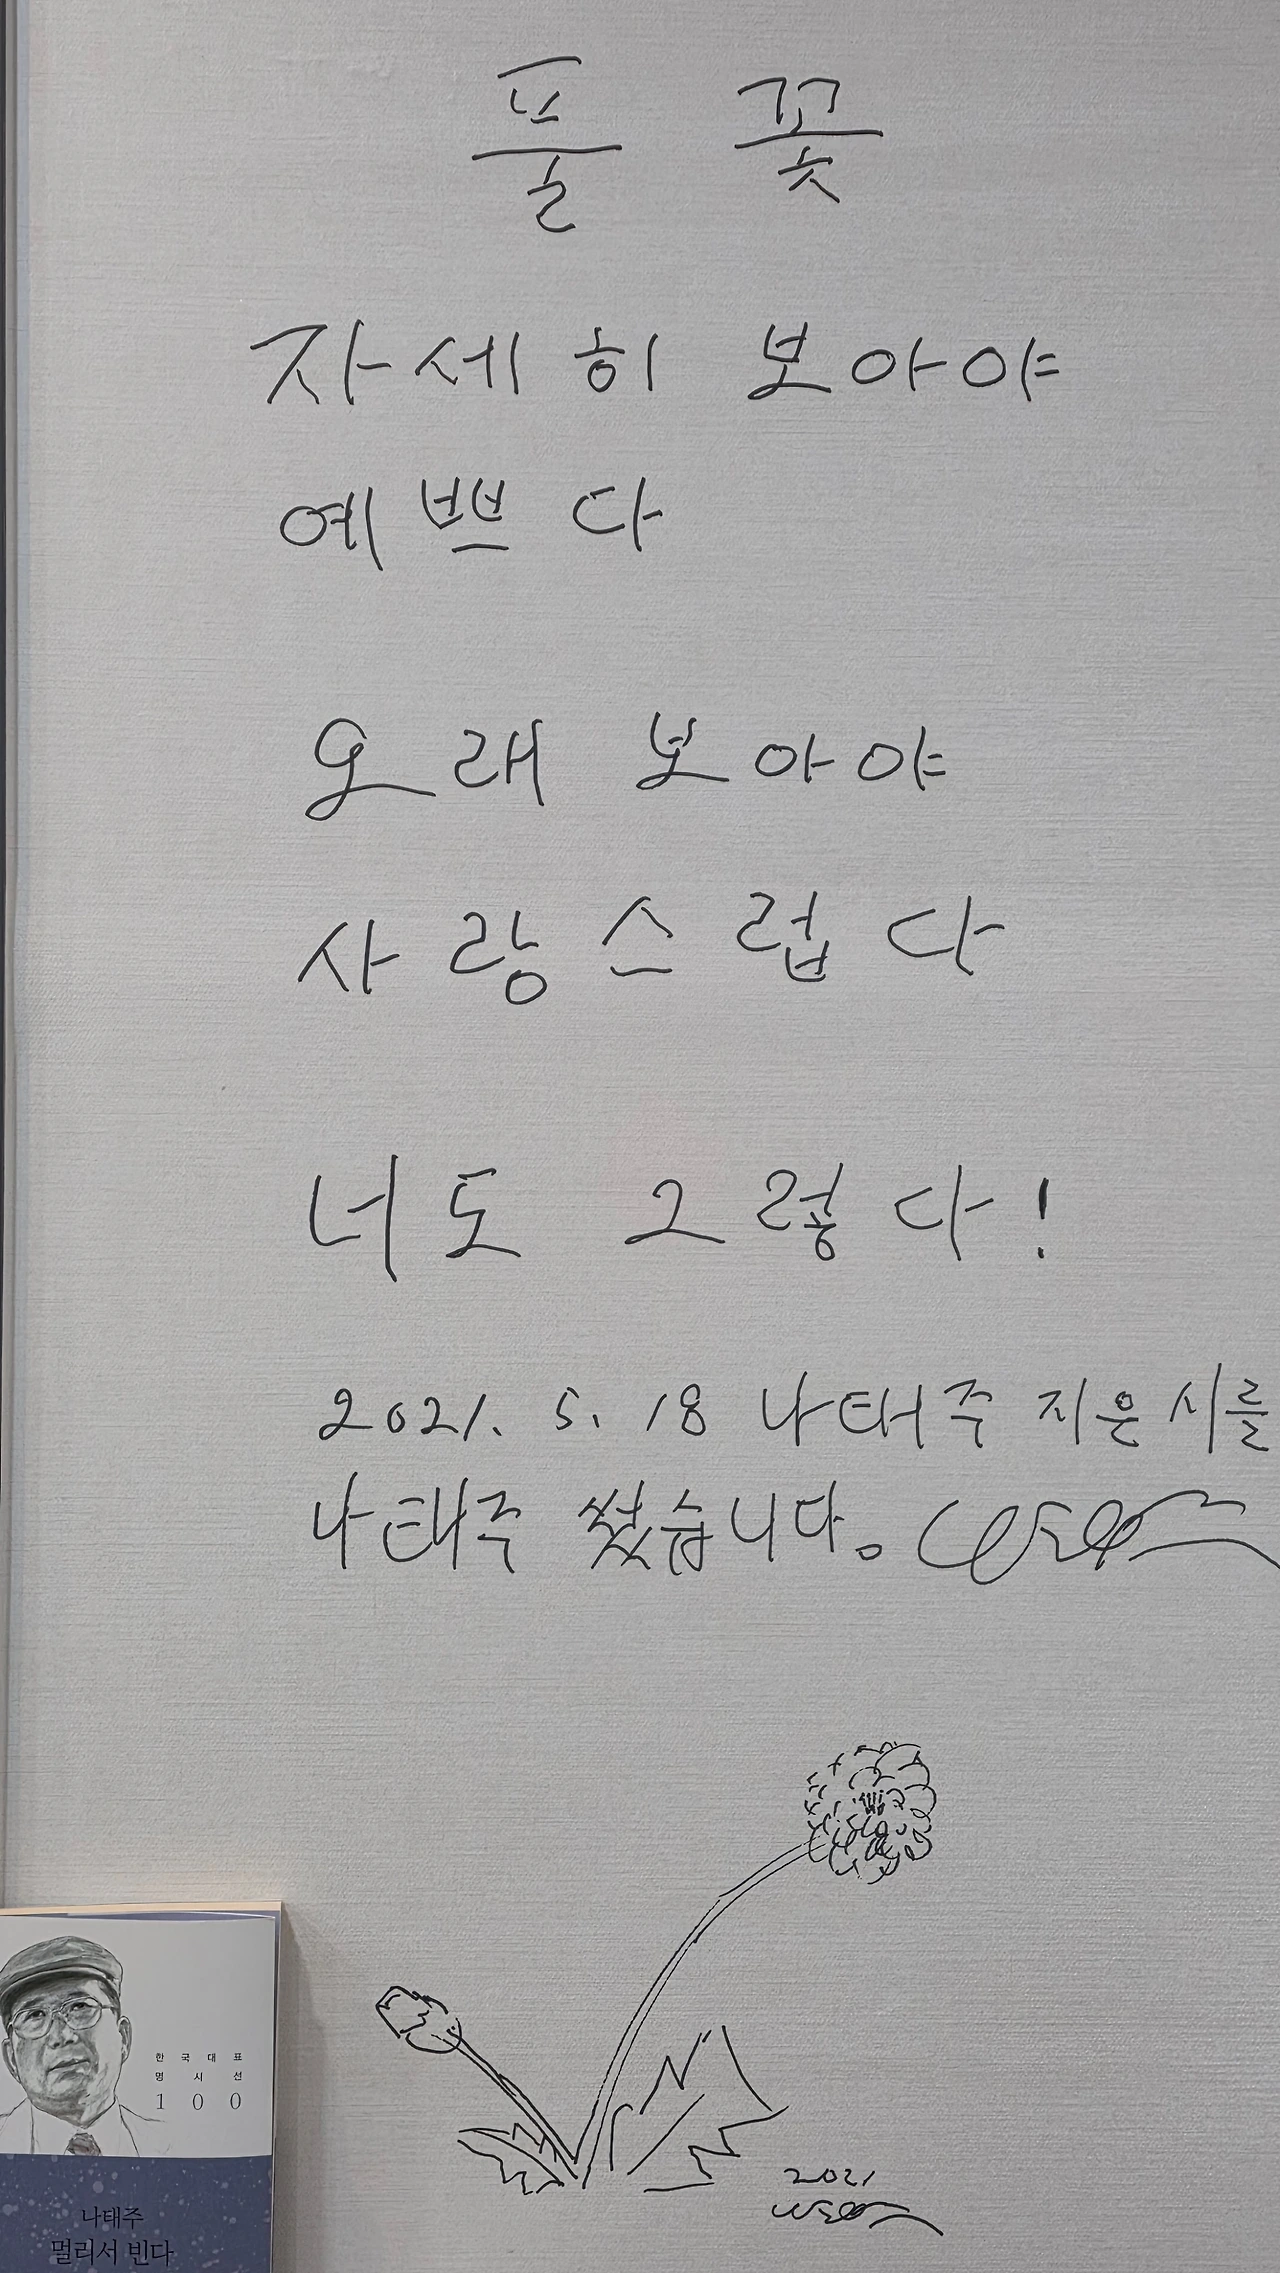 풀꽃
자세히 보아야
예쁘다
오래 보아야
사랑스럽다
너도 그렇다!
2021. 5. 18 나태주 지은 시를
나태주 썼습니다.
2021
한국대표
명시선
100
나태주
멀리서 빈다